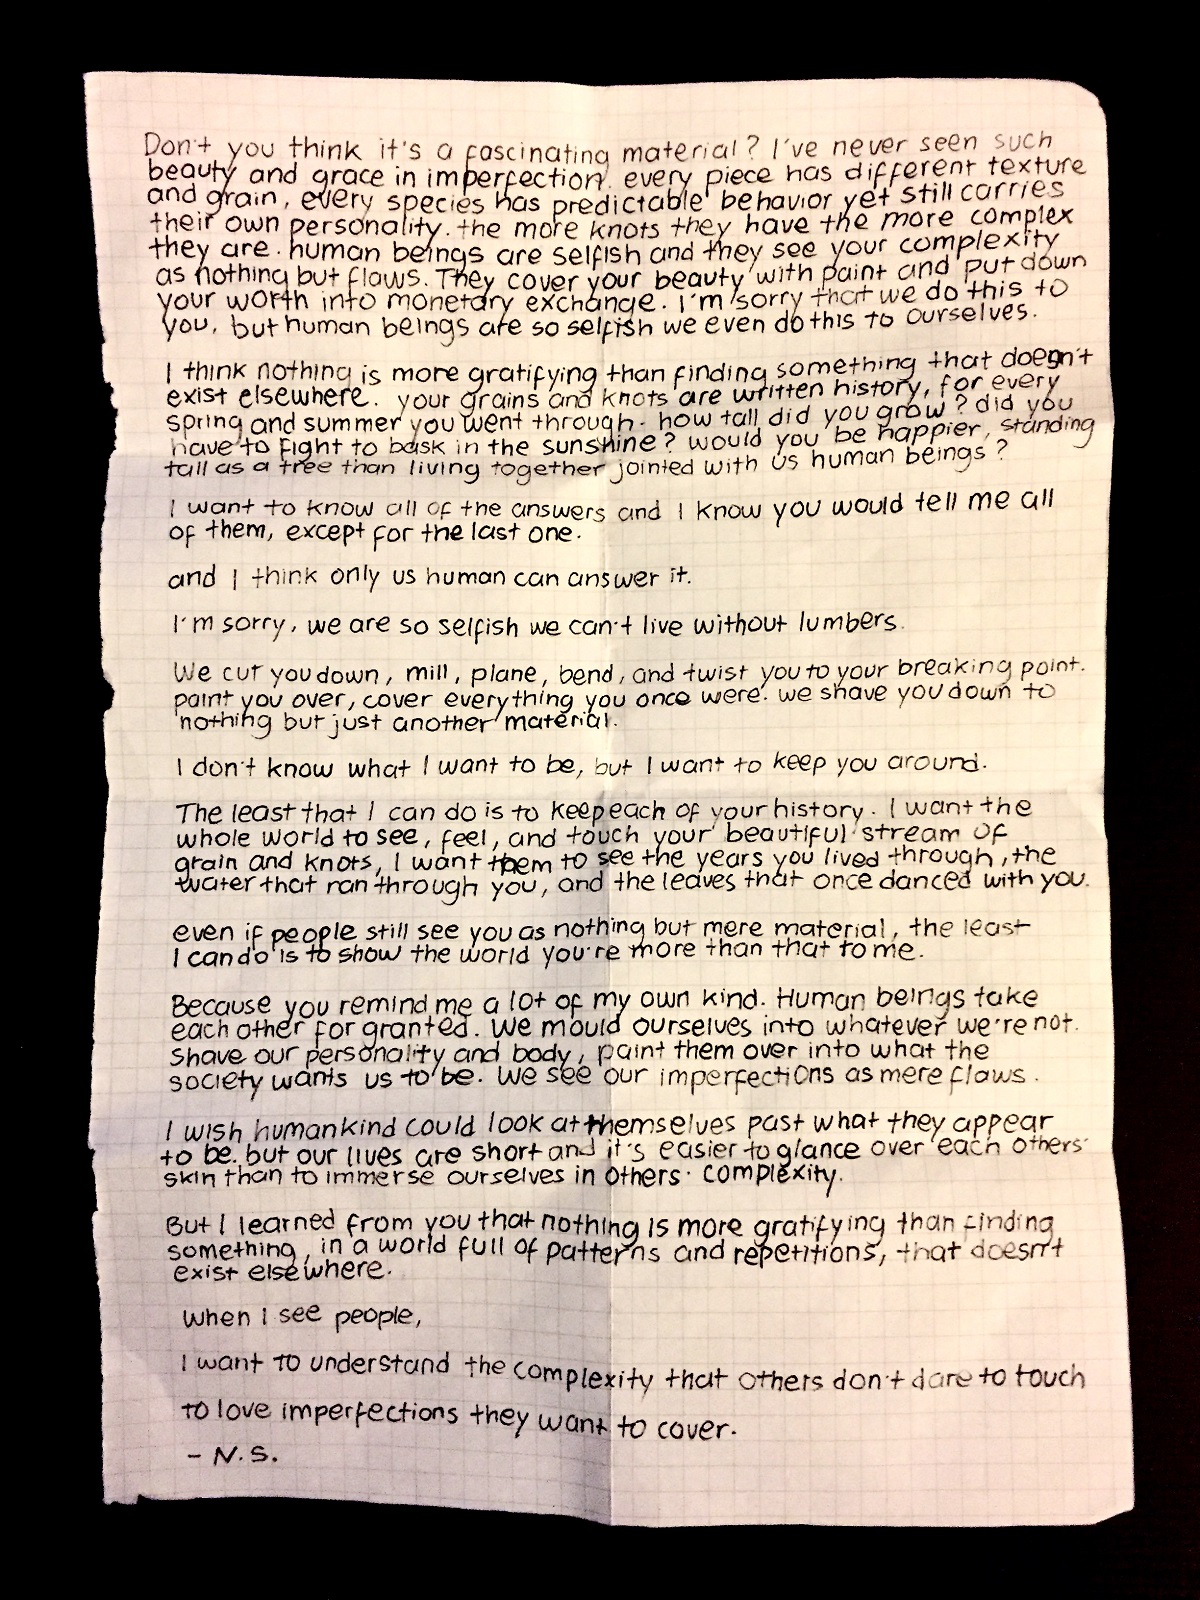 Don't you think it's a fascinating material? I've never seen such
beauty and grace in imperfection. every piece has different texture
and grain, every species has predictable behavior yet still carries
their own personality. the more knots they have the more complex
they are. human beings are selfish and they see your complexity
as nothing but flaws. They cover your beauty with paint and put down
your worth into monetary exchange. I'm sorry that we do this to
you, but human beings are so selfish we even do this to ourselves.
I think nothing is more gratifying than finding something that doesn't
exist elsewhere. your grains and knots are written history, for every
spring and summer you went through. how tall did you grow? did you
have to fight to bask in the sunshine? would you be happier, standing
tall as a tree than living together jointed with us human beings?
I want to know all of the answers and I know you would tell me all
of them, except for the last one.
and I think only us human can answer it.
I'm sorry, we are so selfish we can't live without lumbers.
We cut you down, mill, plane, bend, and twist you to your breaking point.
paint you over, cover everything you once were. we shave you down to
nothing but just another material.
I don't know what I want to be, but I want to keep you around.
The least that I can do is to keep each of your history. I want the
whole world to see, feel, and touch your beautiful stream of
grain and knots, I want them to see the years you lived through, the
water that ran through you, and the leaves that once danced with you.
even if people still see you as nothing but mere material, the least
I can do is to show the world you're more than that to me.
Because you remind me a lot of my own kind. Human beings take
each other for granted. We mould ourselves into whatever we're not.
Shave our personality and body, paint them over into what the
society wants us to be. We see our imperfections as mere flaws.
I wish humankind could look at themselves past what they appear
to be. but our lives are short and it's easier to glance over each others'
skin than to immerse ourselves in others' complexity.
But I learned from you that nothing is more gratifying than finding
something, in a world full of patterns and repetitions, that doesn't
exist elsewhere.
when I see people,
I want to understand the complexity that others don't dare to touch
to love imperfections they want to cover.
- N.S.